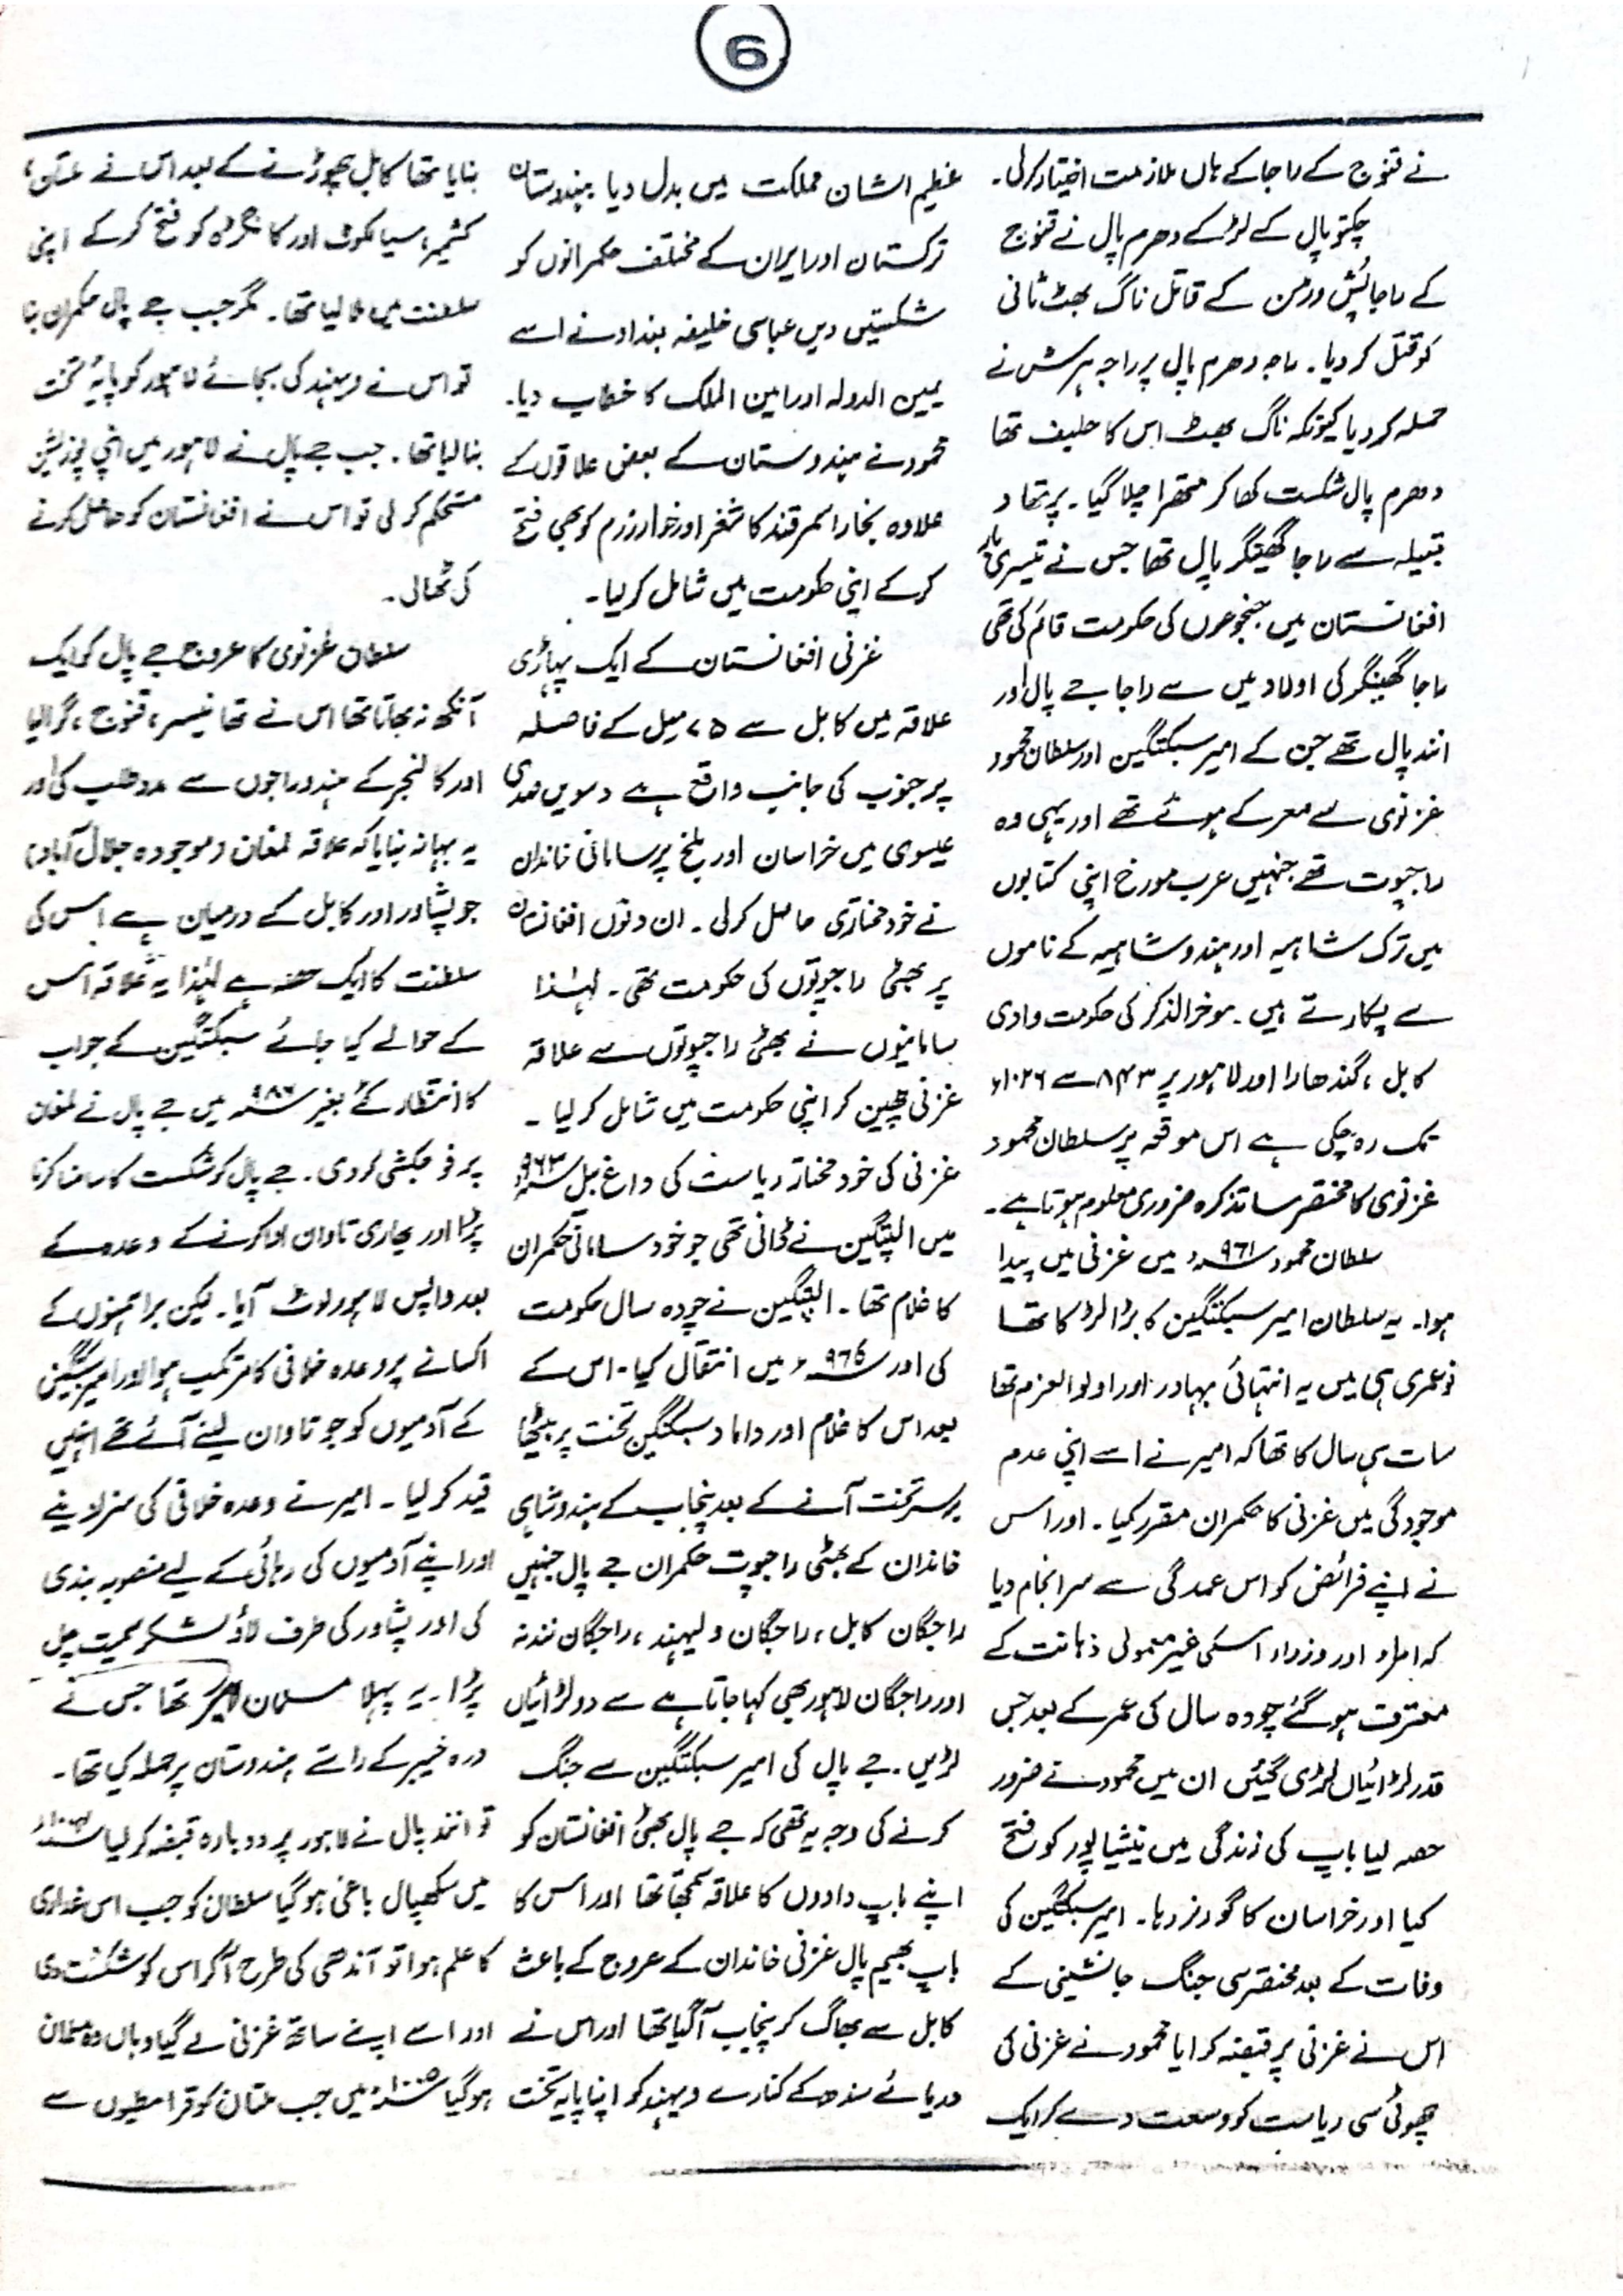 6
نے قنوج کے راجا کے ہاں ملازمت اختیار کرلی۔
چکتو پال کے لڑکے دھرم پال نے قنوج
کے راجا ئش ورمن کے قاتل ناگ بھٹ ثانی
کو قتل کر دیا۔ راجہ دھرم پال پر راجہ ہرش نے
حملہ کر دیا کیونکہ ناگ بھٹ اس کا حلیف تھا
دھرم پال شکست کھا کر متھرا چلا گیا۔ پرتھا د
قبیلہ سے راجا گھینگر پال تھا جس نے تیسری بار
افغانستان میں جنجوعوں کی حکومت قائم کی تھی
راجا گھینگر کی اولاد میں سے راجا جے پال اور
انند پال تھے جن کے امیر سبکتگین اور سلطان محمود
غزنوی سے معرکے ہوئے تھے اور یہی وہ
راجپوت تھے جنہیں عرب مورخ اپنی کتابوں
میں ترک شاہیہ اور ہندو شاہیہ کے ناموں
سے پکارتے ہیں۔ موخرالذکر کی حکومت وادی
کابل ، گندھارا اور لاہور پر ۸۴۳ سے ۱۰۲۶ء
تک رہ چکی ہے اس موقعہ پر سلطان محمود
غزنوی کا مختصر سا تذکرہ ضروری معلوم ہوتا ہے۔
سلطان محمود ۹۶۱ء میں غزنی میں پیدا
ہوا۔ یہ سلطان امیر سبکتگین کا بڑا لڑکا تھا
نو عمری ہی میں یہ انتہائی بہادر اور اولوالعزم تھا
سات ہی سال کا تھا کہ امیر نے اسے اپنی عدم
موجودگی میں غزنی کا حکمران مقرر کیا۔ اور اس
نے اپنے فرائض کو اس عمدگی سے سرانجام دیا
کہ امراء اور وزراء اسکی غیر معمولی ذہانت کے
معترف ہو گئے چودہ سال کی عمر کے بعد جس
قدر لڑائیاں لڑی گئیں ان میں محمود نے ضرور
حصہ لیا باپ کی زندگی میں نیشاپور کو فتح
کیا اور خراسان کا گورنر رہا۔ امیر سبکتگین کی
وفات کے بعد مختصر سی جنگ جانشینی کے
اس نے غزنی پر قبضہ کرایا محمود نے غزنی کی
چھوٹی سی ریاست کو وسعت دے کر ایک
عظیم الشان مملکت میں بدل دیا ہندوستان
ترکستان اور ایران کے مختلف حکمرانوں کو
شکستیں دیں عباسی خلیفہ بغداد نے اسے
یمین الدولہ اور امین الملک کا خطاب دیا۔
محمود نے ہندوستان کے بعض علاقوں کے
علاوہ بخارا سمرقند کاشغر اور خوارزم کو بھی فتح
کر کے اپنی حکومت میں شامل کر لیا۔
غزنی افغانستان کے ایک پہاڑی
علاقہ میں کابل سے ۷۵ میل کے فاصلہ
پر جنوب کی جانب واقع ہے دسویں صدی
عیسوی میں خراسان اور بلخ پر سامانی خاندان
نے خود مختاری حاصل کرلی۔ ان دنوں افغانستان
پر بھٹی راجپوتوں کی حکومت تھی۔ لہٰذا
سامانیوں نے بھٹی راجپوتوں سے علاقہ
غزنی چھین کر اپنی حکومت میں شامل کر لیا ۔
غزنی کی خود مختار ریاست کی داغ بیل ۹۶۳ء
میں الپتگین نے ڈالی تھی جو خود سامانی حکمران
کا غلام تھا۔ الپتگین نے چودہ سال حکومت
کی اور ۹۷۶ء میں انتقال کیا۔ اس کے
بعد اس کا غلام اور داماد سبکتگین تخت پر بیٹھا
برسر تخت آنے کے بعد پنجاب کے ہندو شاہی
خاندان کے بھٹی راجپوت حکمران جے پال جنہیں
راجگان کابل ، راجگان ویہند ، راجگان نندنہ
اور راجگان لاہور بھی کہا جاتا ہے سے دو لڑائیاں
لڑیں۔ جے پال کی امیر سبکتگین سے جنگ
کرنے کی وجہ یہ تھی کہ جے پال بھٹی افغانستان کو
اپنے باپ دادوں کا علاقہ سمجھتا تھا اور اس کا
باپ بھیم پال غزنی خاندان کے عروج کے باعث
کابل سے بھاگ کر پنجاب آ گیا تھا اور اس نے
دریائے سندھ کے کنارے ویہند کو اپنا پایہ تخت
بنایا تھا کابل چھوڑنے کے بعد اس نے ملتان ،
کشمیر ، سیالکوٹ اور کانگڑہ کو فتح کر کے اپنی
سلطنت میں ملا لیا تھا۔ مگر جب جے پال حکمران بنا
تو اس نے ویہند کی بجائے لاہور کو پایۂ تخت
بنا لیا تھا۔ جب جے پال نے لاہور میں اپنی پوزیشن
مستحکم کر لی تو اس نے افغانستان کو حاصل کرنے
کی ٹھالی۔
سلطان غزنوی کا عروج جے پال کو ایک
آنکھ نہ بھاتا تھا اس نے تھانیسر ، قنوج ، گوالیا
اور کالنجر کے ہندو راجوں سے مدد طلب کی اور
یہ بہانہ بنایا کہ علاقہ لمغان (موجودہ جلال آباد)
جو پشاور اور کابل کے درمیان ہے اس کی
سلطنت کا ایک حصہ ہے لہٰذا یہ علاقہ اس
کے حوالے کیا جائے سبکتگین کے جواب
کا انتظار کئے بغیر ۹۸۶ء میں جے پال نے لمغان
پر فوجکشی کر دی۔ جے پال کو شکست کا سامنا کرنا
پڑا اور بھاری تاوان ادا کرنے کے وعدہ کے
بعد واپس لاہور لوٹ آیا۔ لیکن براہمنوں کے
اکسانے پر وعدہ خلافی کا مرتکب ہوا اور امیر سبکتگین
کے آدمیوں کو جو تاوان لینے آئے تھے انہیں
قید کر لیا ۔ امیر نے وعدہ خلافی کی سزا دینے
اور اپنے آدمیوں کی رہائی کے لیے منصوبہ بندی
کی اور پشاور کی طرف لاؤ لشکر سمیت چل
پڑا۔ یہ پہلا مسلمان امیر تھا جس نے
درہ خیبر کے راستے ہندوستان پر حملہ کیا تھا۔
تو انند پال نے لاہور پر دوبارہ قبضہ کر لیا
میں سکھپال باغی ہو گیا سلطان کو جب اس غداری
کا علم ہوا تو آندھی کی طرح آ کر اس کو شکست دی
اور اسے اپنے ساتھ غزنی لے گیا وہاں وہ مسلمان
ہو گیا ۱۰۰۵ء میں جب ملتان کو قرامطیوں سے